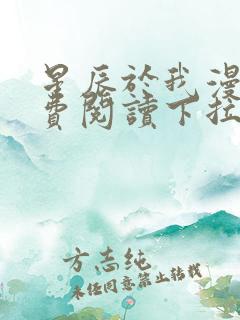 星辰於我漫
費閱讀下拉
方志纯
未经同意禁止转载